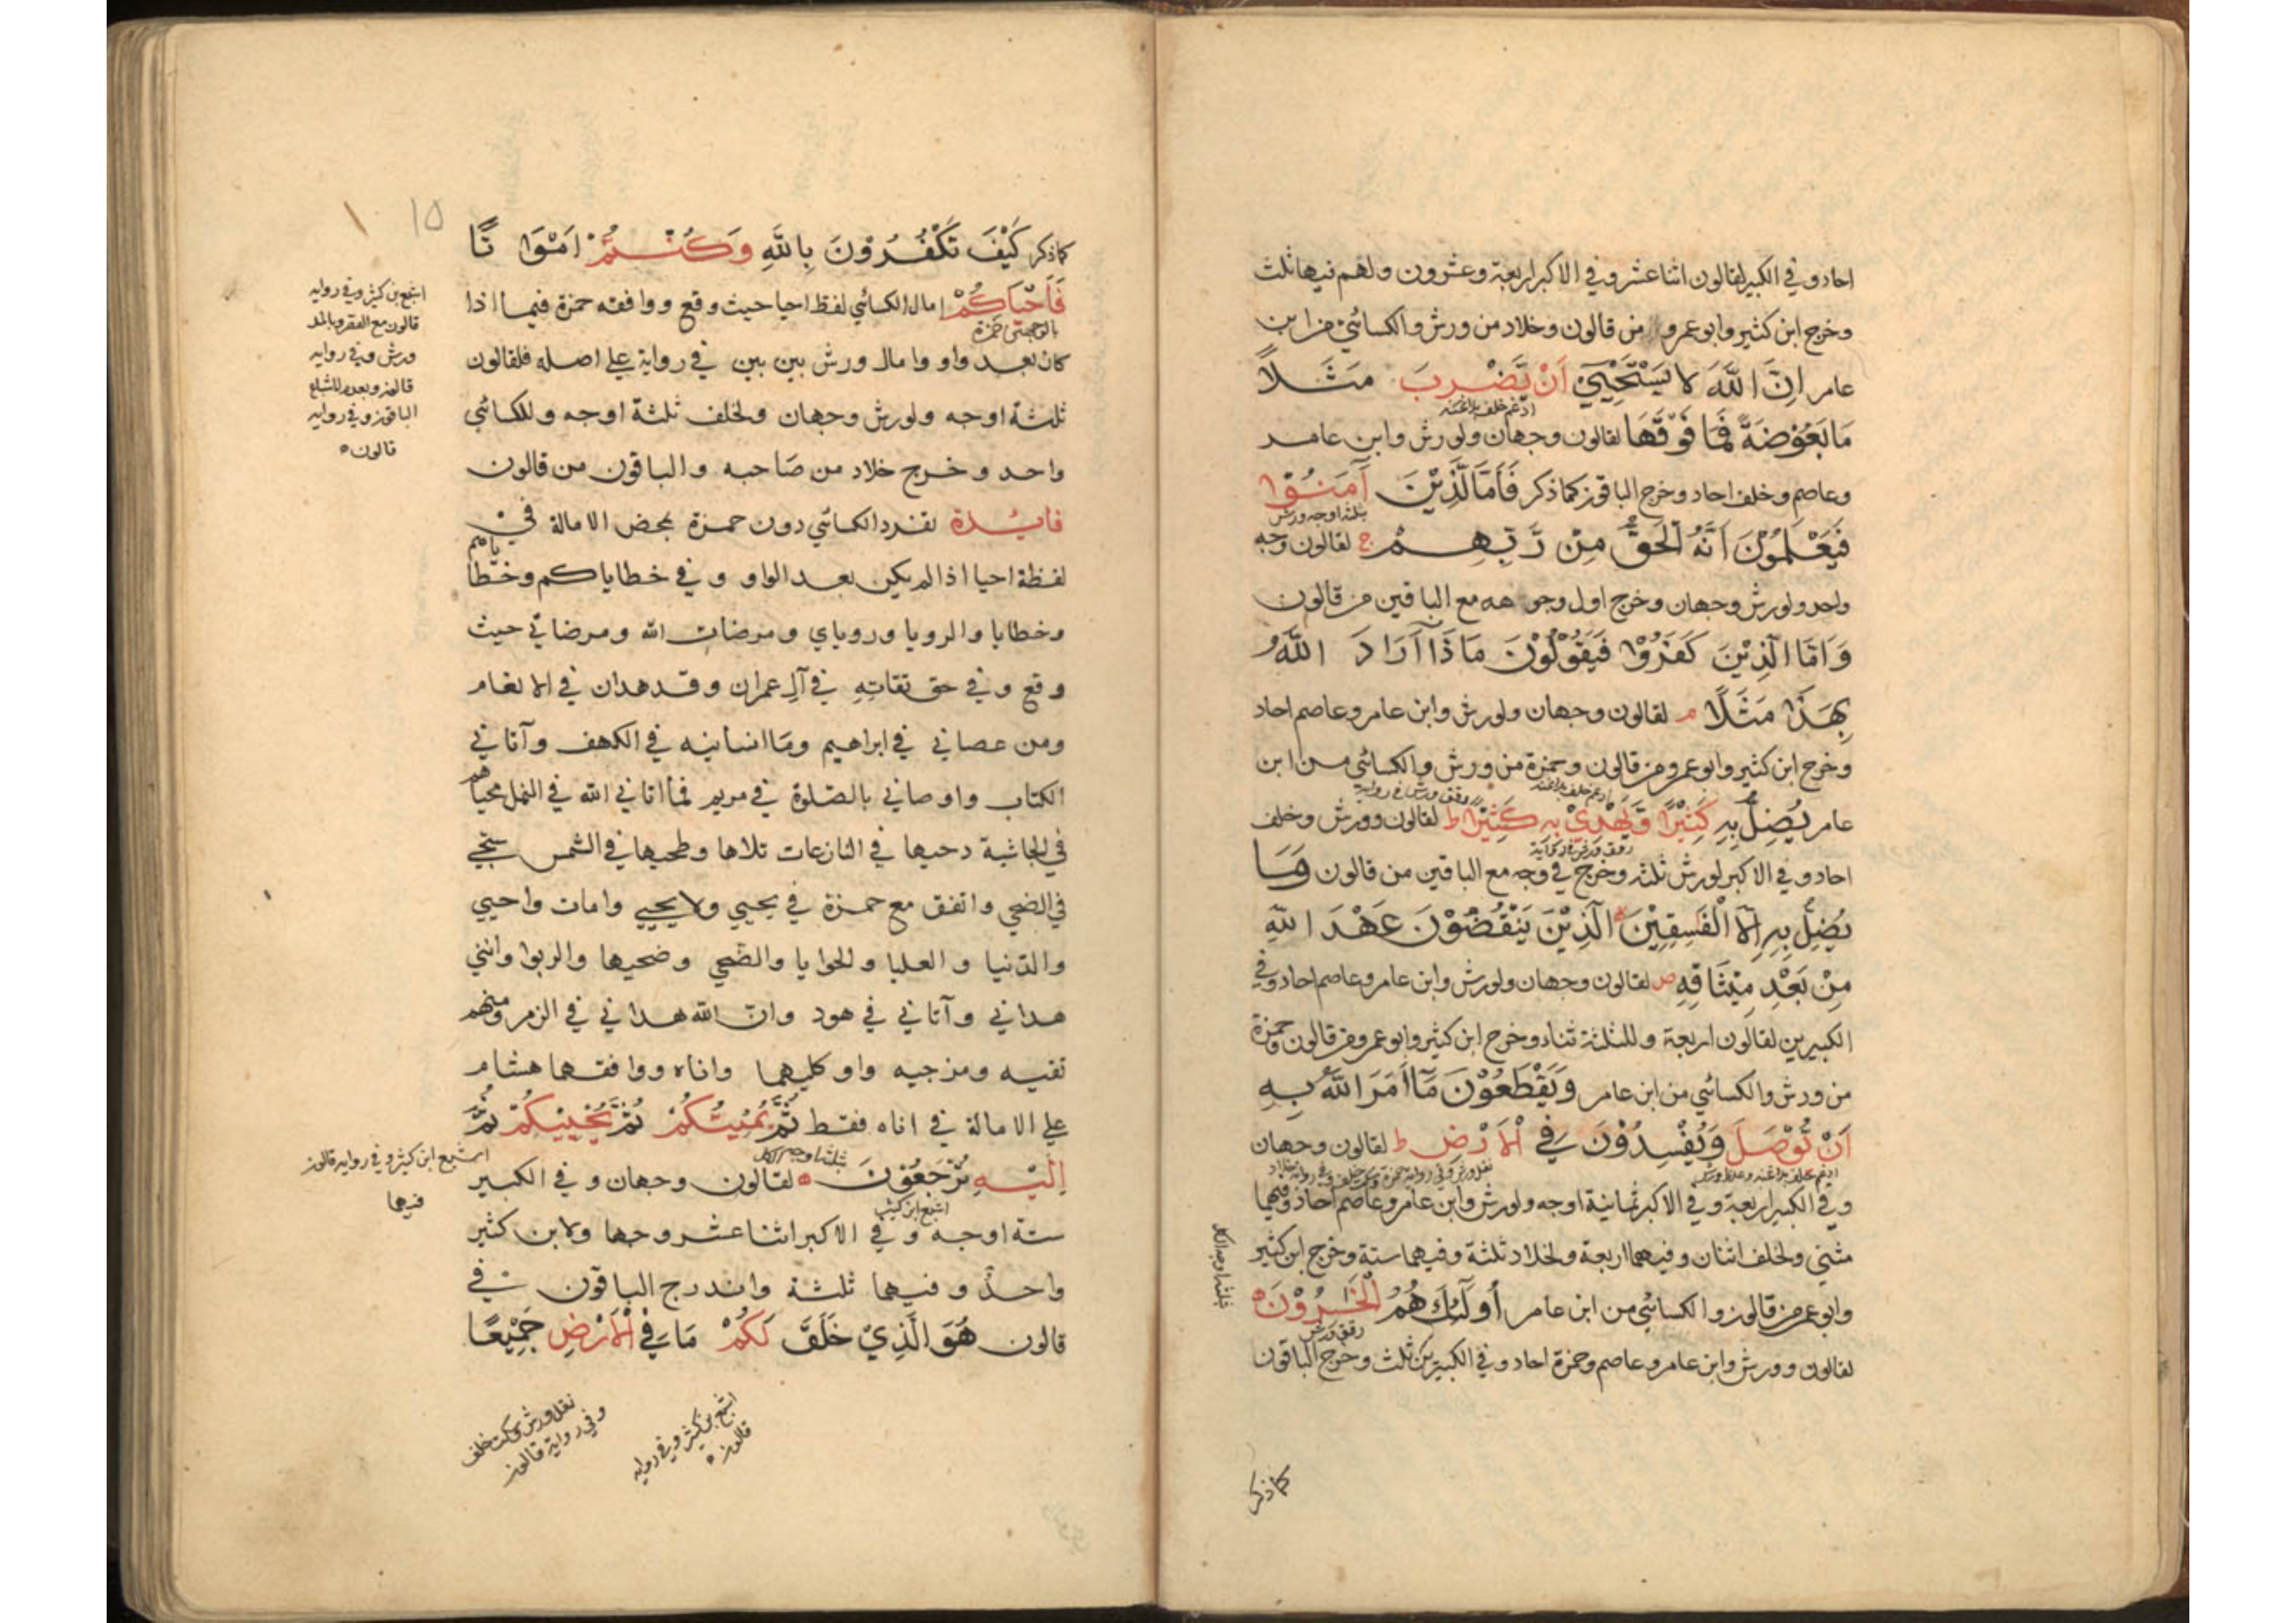 احاد وفي الكبير لقالون اثنا عشر وفي الاكبر اربعة وعشرون ولهم فيها ثلث
وخرج ابن كثير وابو عمرو من قالون وخلاد من ورش والكسائي من ابن
عامر اِنَّ اللّٰهَ لا يَسْتَحْيِيْ اَنْ يَّضْرِبَ مَثَلًا
ادغم خلف بلاغنه
مَا بَعُوْضَةً فَمَا فَوْقَهَا لقالون وجهان ولورش وابن عامر
وعاصم وخلف احاد وخرج الباقون كما ذكر فَاَمَّا الَّذِيْنَ آمَنُوْا
بثلثة اوجه ورش
فَيَعْلَمُوْنَ اَنَّهُ الْحَقُّ مِنْ رَّبِّهِمْ ج لقالون وجه
واحد ولورش وجهان وخرج اول وجوهه مع الباقين من قالون
وَاَمَّا الَّذِيْنَ كَفَرُوْا فَيَقُوْلُوْنَ مَاذَا اَرَادَ اللّٰهُ
بِهٰذَا مَثَلًا م لقالون وجهان ولورش وابن عامر وعاصم احاد
وخرج ابن كثير وابو عمرو من قالون وحمزة من ورش والكسائي من ابن
ادغم خلف بلاغنه وقف ورش في رواية
عامر يُضِلُّ بِهٖ كَثِيْرًا وَّيَهْدِيْ بِهٖ كَثِيْرًا ط لقالون وورش وخلف
احاد وفي الاكبر لورش ثلثة وخرج في وجه مع الباقين من قالون وَمَا
يُضِلُّ بِهٖ اِلَّا الْفٰسِقِيْنَ الَّذِيْنَ يَنْقُضُوْنَ عَهْدَ اللّٰهِ
مِنْ بَعْدِ مِيْثَاقِهٖ ص لقالون وجهان ولورش وابن عامر وعاصم احاد وفي
الكبيرين لقالون اربعة وللثلثة ثناء وخرج ابن كثير وابو عمرو من قالون وحمزة
من ورش والكسائي من ابن عامر وَيَقْطَعُوْنَ مَا اَمَرَ اللّٰهُ بِهٖ
اَنْ يُّوْصَلَ وَيُفْسِدُوْنَ فِي الْاَرْضِ ط لقالون وجهان
وفي الكبير اربعة وفي الاكبر ثمانية اوجه ولورش وابن عامر وعاصم احاد وفيها
مثنى ولخلف اثنان وفيهما اربعة ولخلاد ثلثة وفيهما ستة وخرج ابن كثير
وابو عمرو من قالون والكسائي من ابن عامر أُولٰئِكَ هُمُ الْخٰسِرُوْنَ
رقق ورش
لقالون وورش وابن عامر وعاصم وحمزة احاد وفي الكبيرين ثلث وخرج الباقون
بثلثة اوجه للكل
كما ذكر
١٥
كما ذكر كَيْفَ تَكْفُرُوْنَ بِاللّٰهِ وَكُنْتُمْ اَمْوَاتًا
فَاَحْيَاكُمْ امال الكسائي لفظ احيا حيث وقع ووافقه حمزة فيما اذا
كان بعد واو وامال ورش بين بين في رواية علي اصله فلقالون
ثلثة اوجه ولورش وجهان ولخلف ثلثة اوجه وللكسائي
واحد وخرج خلاد من صاحبه والباقون من قالون
فائدة تفرد الكسائي دون حمزة بمحض الامالة في
لفظة احيا اذا لم يكن بعد الواو وفي خطاياكم وخطاياهم
وخطايا والرويا وروياي ومرضات الله ومرضاتي حيث
وقع وفي حق تقاته في آل عمران وقد هدان في الانعام
ومن عصاني في ابراهيم وما انسانيه في الكهف وآتاني
الكتاب واوصاني بالصلوة في مريم فما اتاني الله في النمل محياهم
في الجاثية دحيها في النازعات تلاها وطحيها في الشمس سجي
في الضحي واتفق مع حمزة في يحيي ولا يحيي وامات واحيي
والدنيا والعليا والحوايا والضحي وضحيها والربوا وانني
هداني وآتاني في هود وان الله هداني في الزمر ومنهم
تقيه ومزجيه واو كليهما واناه ووافقهما هشام
علي الامالة في اناه فقط ثُمَّ يُمِيْتُكُمْ ثُمَّ يُحْيِيْكُمْ ثُمَّ
بثلثة اوجه للكل
اِلَيْهِ تُرْجَعُوْنَ لقالون وجهان وفي الكبير
اشبع ابن كثير
ستة اوجه وفي الاكبر اثنا عشر وجها ولابن كثير
واحد وفيهما ثلثة واندرج الباقون في
قالون هُوَ الَّذِيْ خَلَقَ لَكُمْ مَا فِي الْاَرْضِ جَمِيْعًا
اشبع بن كثير وفي رواية
قالون مع القصر وبالمد
ورش وفي رواية
قالون وبعدم للشلع
الباقون وفي رواية
قالون
اشبع ابن كثير وفي رواية قالون
فيها
اشبع بن كثير وفي رواية
قالون
نقل ورش وسكت خلف
وفي رواية قالون